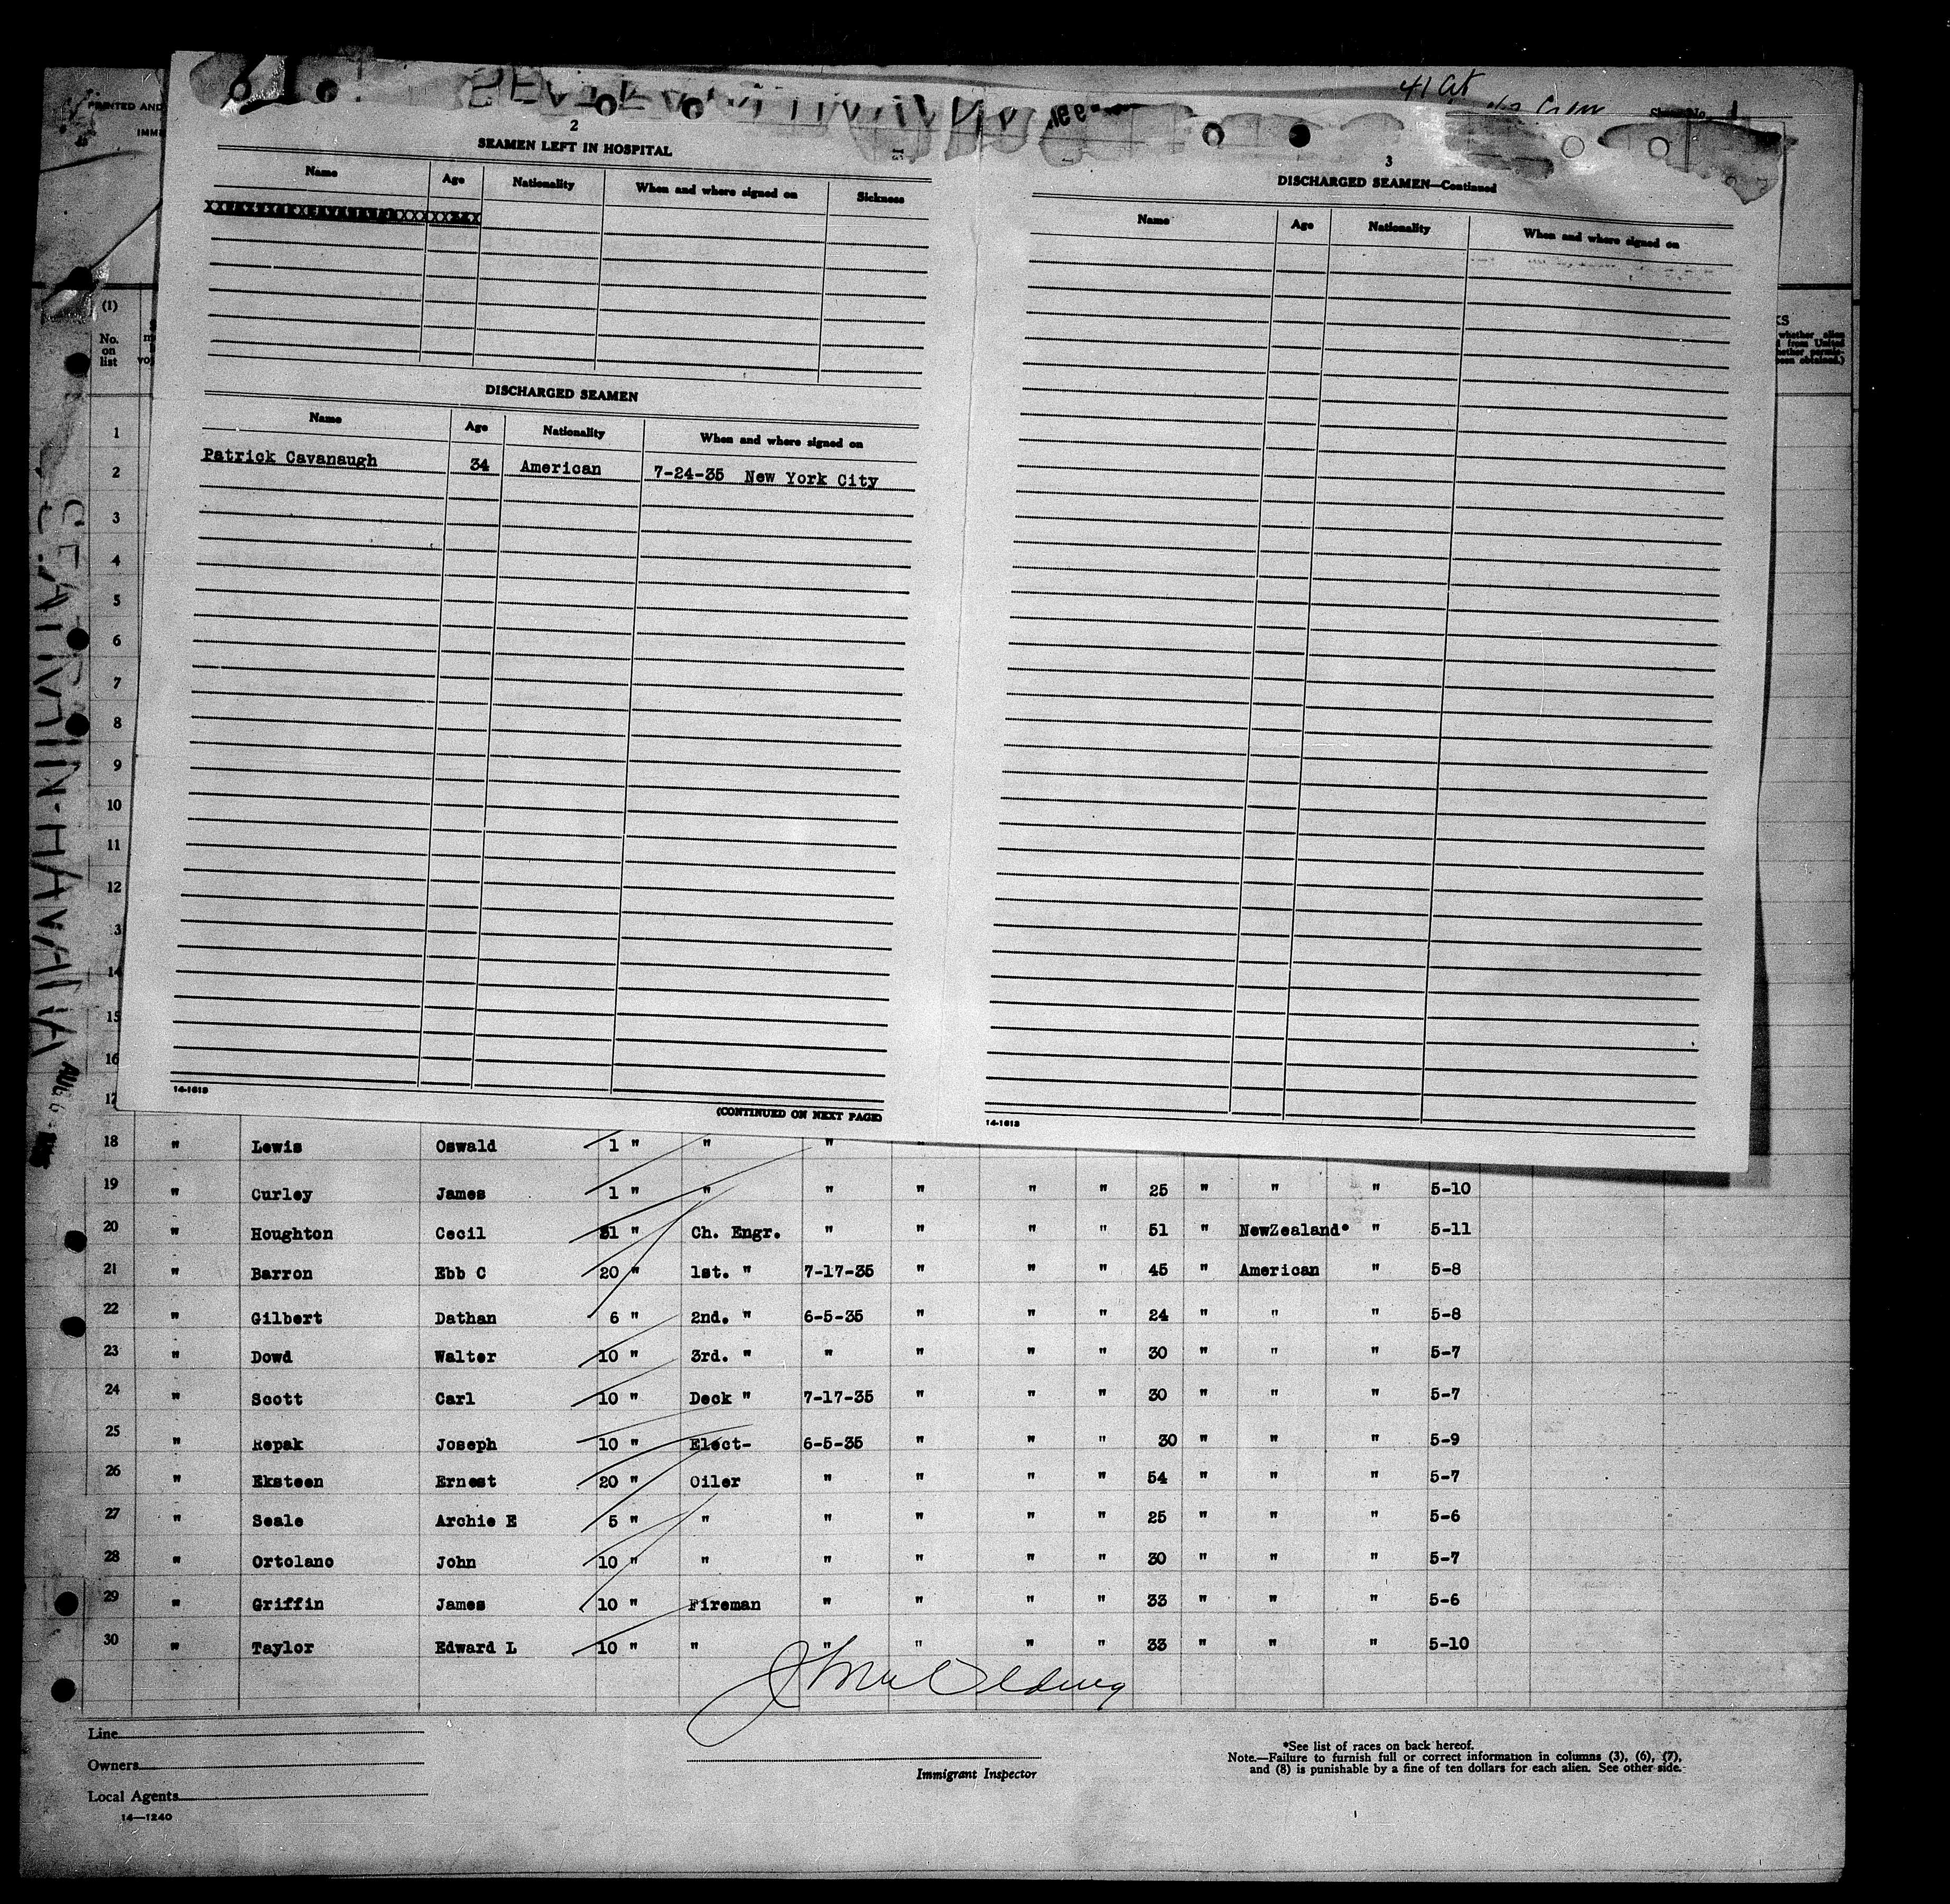 PRINTED AND
IMMI
41 Cit
Crew
Sheet No. 1
2
SEAMEN LEFT IN HOSPITAL
Name Age Nationality When and where signed on Sickness
DISCHARGED SEAMEN
Name Age Nationality When and where signed on
Patrick Cavanaugh 34 American 7-24-35 New York City
14-1613
(CONTINUED ON NEXT PAGE)
3
DISCHARGED SEAMEN—Continued
Name Age Nationality When and where signed on
14-1613
(1)
No.
on
list
KS
whether alien
d from United
hether permis-
been obtained.)
1
2
3
4
5
6
7
8
9
10
11
12
13
14
15
16
17
AUG 6
18 " Lewis Oswald 1 " " " "
19 " Curley James 1 " " " " " " 25 " " " 5-10
20 " Houghton Cecil 31 " Ch. Engr. " " " " 51 " NewZealand* " 5-11
21 " Barron Ebb C 20 " 1st. " 7-17-35 " " " 45 " American " 5-8
22 " Gilbert Dathan 6 " 2nd. " 6-5-35 " " " 24 " " " 5-8
23 " Dowd Walter 10 " 3rd. " " " " " 30 " " " 5-7
24 " Scott Carl 10 " Deck " 7-17-35 " " " 30 " " " 5-7
25 " Repak Joseph 10 " Elect- 6-5-35 " " " 30 " " " 5-9
26 " Eksteen Ernest 20 " Oiler " " " " 54 " " " 5-7
27 " Seale Archie E 5 " " " " " " 25 " " " 5-6
28 " Ortolano John 10 " " " " " " 30 " " " 5-7
29 " Griffin James 10 " Fireman " " " " 33 " " " 5-6
30 " Taylor Edward L 10 " " " " " " 33 " " " 5-10
Line
Owners
Local Agents
14—1240
Immigrant Inspector
*See list of races on back hereof.
Note.—Failure to furnish full or correct information in columns (3), (6), (7),
and (8) is punishable by a fine of ten dollars for each alien. See other side.